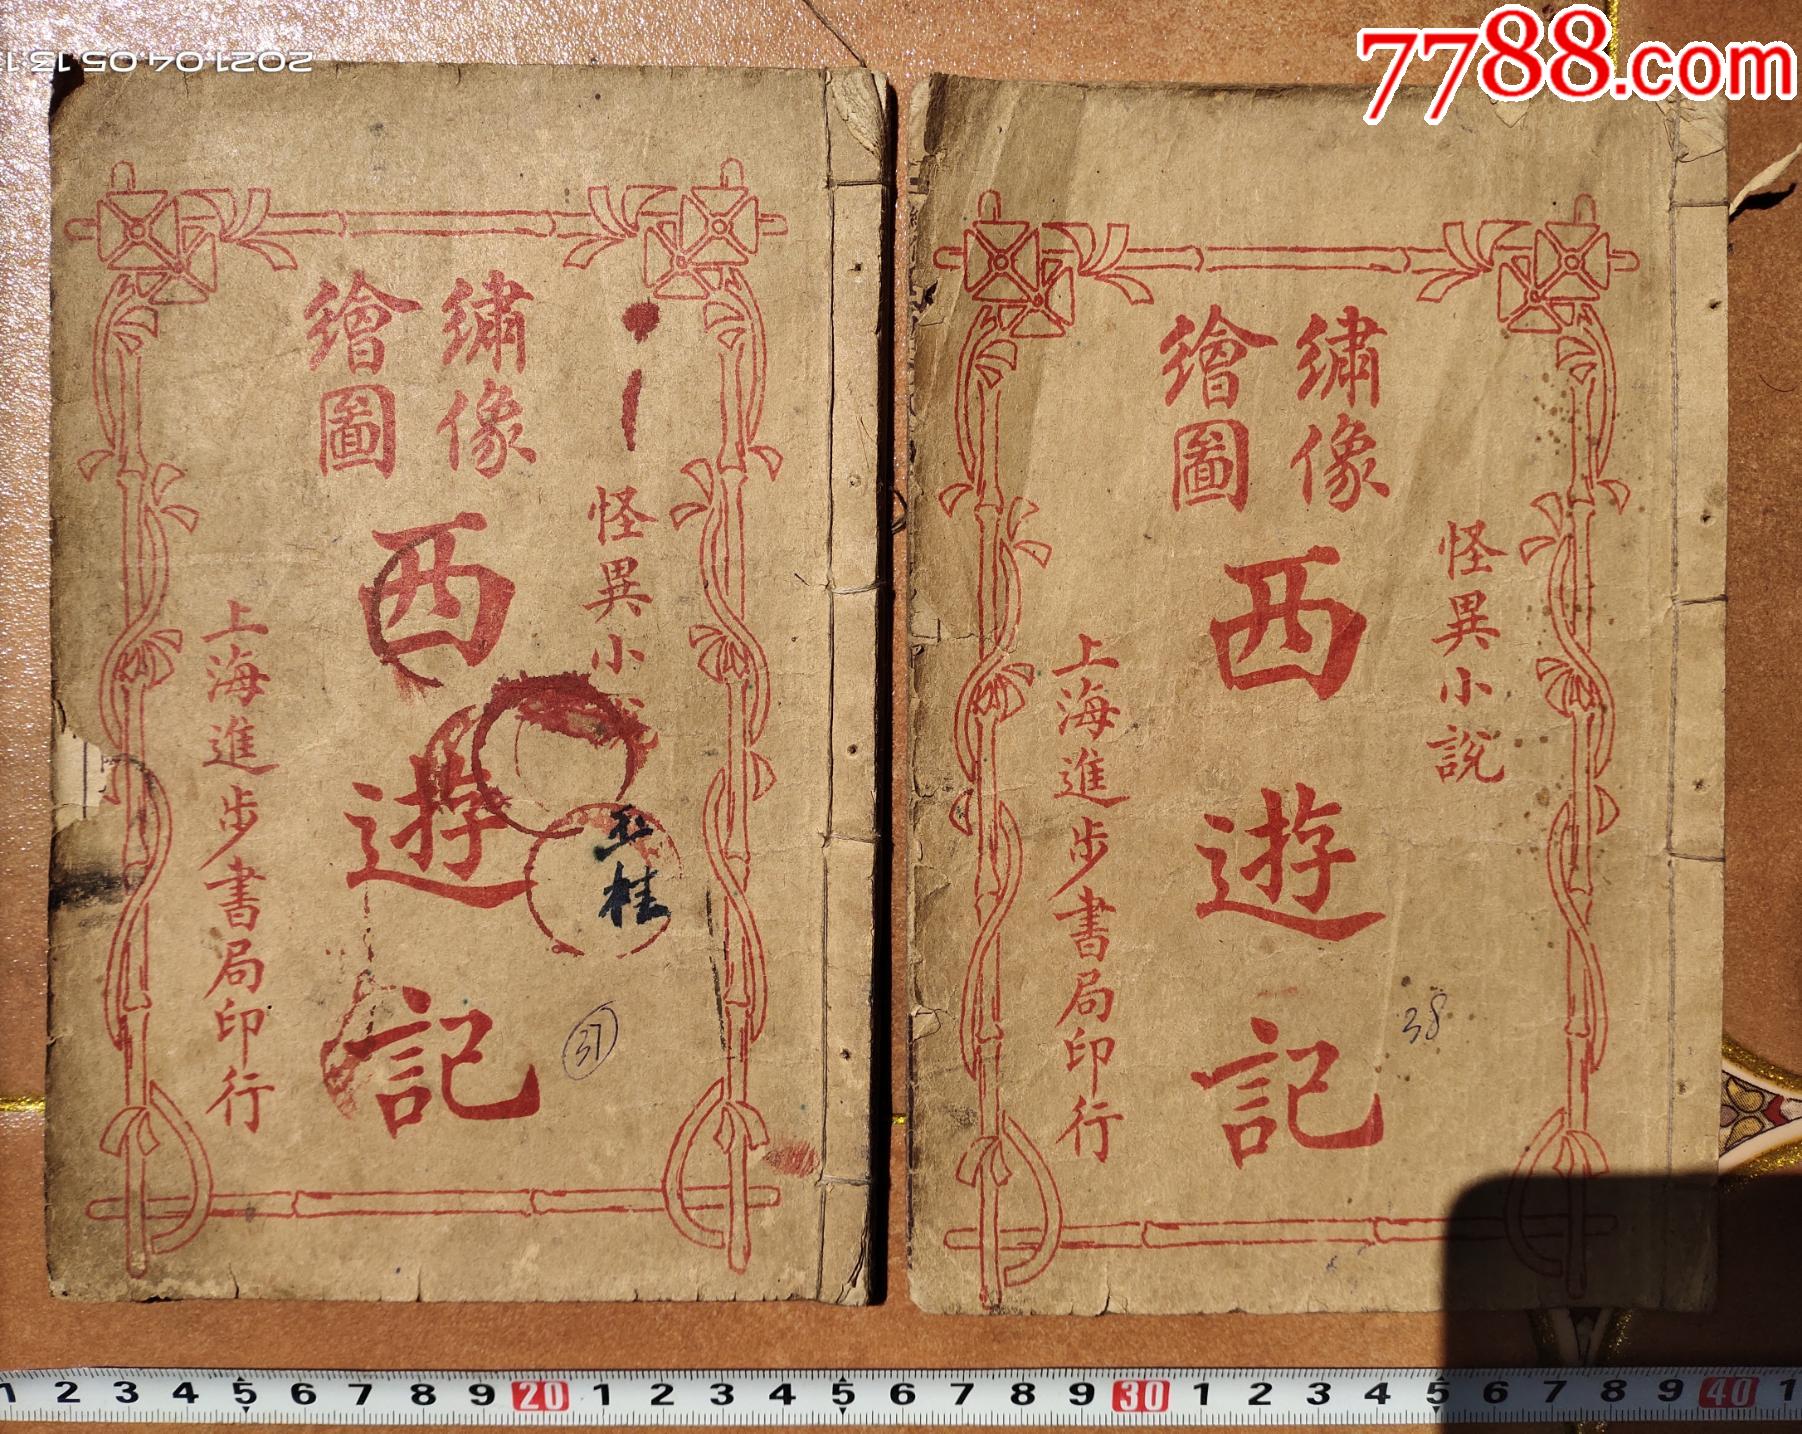 2021.04.05 13:1
7788.com
怪異小說
繡像
繪圖
西遊記
上海進步書局印行
玉桂
37
怪異小說
繡像
繪圖
西遊記
上海進步書局印行
38
1 2 3 4 5 6 7 8 9 20 1 2 3 4 5 6 7 8 9 30 1 2 3 4 5 6 7 8 9 40 1